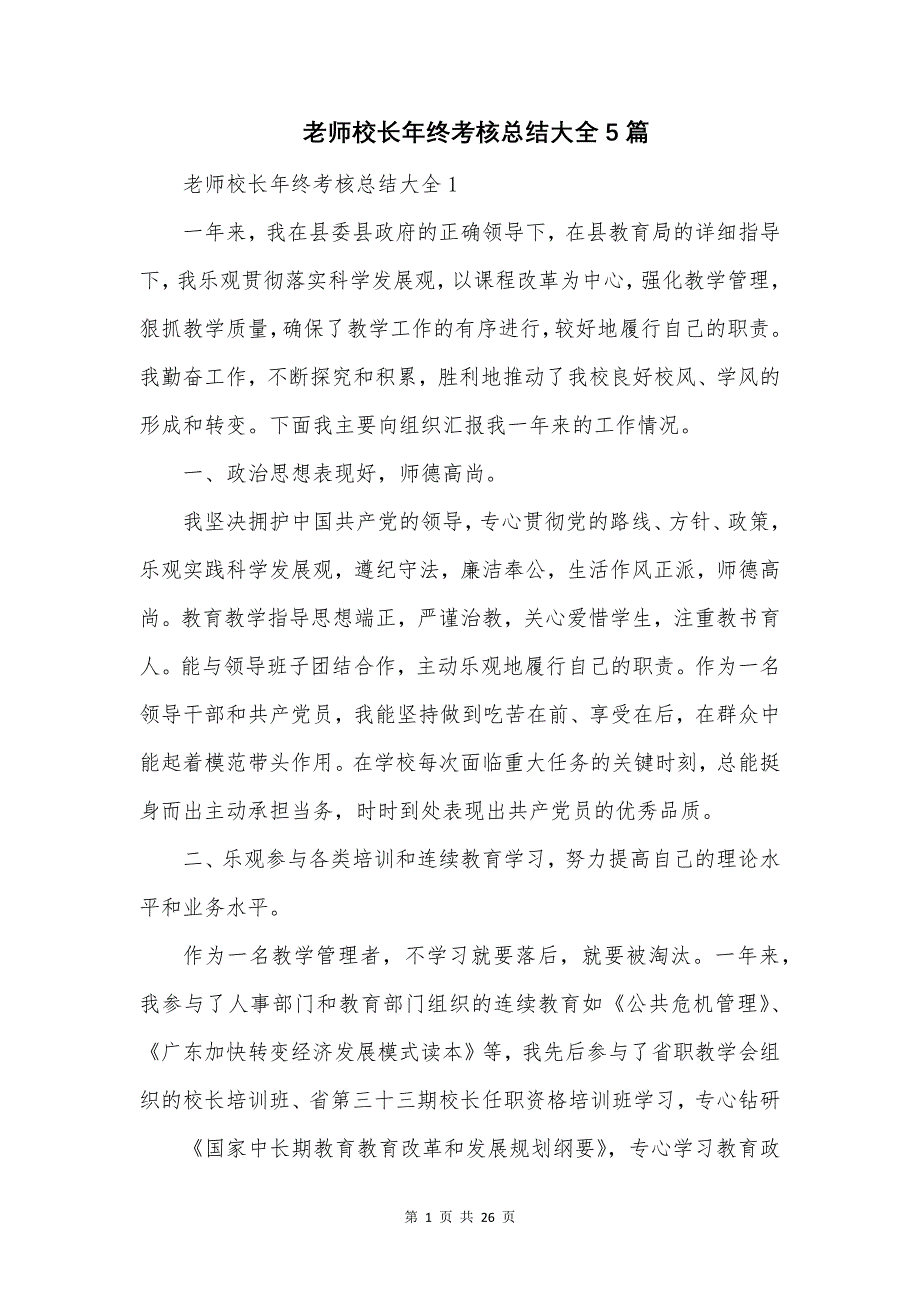 老师校长年终考核总结大全 5 篇
老师校长年终考核总结大全 1
一年来，我在县委县政府的正确领导下，在县教育局的详细指导
下，我乐观贯彻落实科学发展观，以课程改革为中心，强化教学管理，
狠抓教学质量，确保了教学工作的有序进行，较好地履行自己的职责。
我勤奋工作，不断探究和积累，胜利地推动了我校良好校风、学风的
形成和转变。下面我主要向组织汇报我一年来的工作情况。
一、政治思想表现好，师德高尚。
我坚决拥护中国共产党的领导，专心贯彻党的路线、方针、政策，
乐观实践科学发展观，遵纪守法，廉洁奉公，生活作风正派，师德高
尚。教育教学指导思想端正，严谨治教，关心爱惜学生，注重教书育
人。能与领导班子团结合作，主动乐观地履行自己的职责。作为一名
领导干部和共产党员，我能坚持做到吃苦在前、享受在后，在群众中
能起着模范带头作用。在学校每次面临重大任务的关键时刻，总能挺
身而出主动承担当务，时时到处表现出共产党员的优秀品质。
二、乐观参与各类培训和连续教育学习，努力提高自己的理论水
平和业务水平。
作为一名教学管理者，不学习就要落后，就要被淘汰。一年来，
我参与了人事部门和教育部门组织的连续教育如《公共危机管理》、
《广东加快转变经济发展模式读本》等，我先后参与了省职教学会组
织的校长培训班、省第三十三期校长任职资格培训班学习，专心钻研
《国家中长期教育教育改革和发展规划纲要》，专心学习教育政
第 1 页 共 26 页